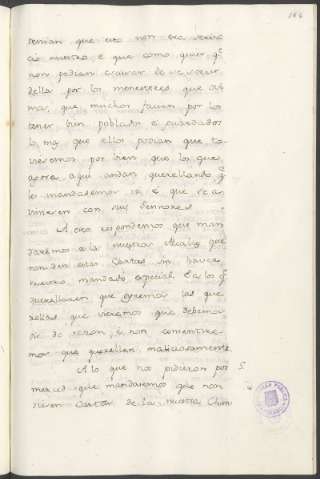 164
tenian que esto non era servi
cio nuestro e que como quier qe
non podian escusar de se servir
della por los menesteres que avi
mos, que muchos facian por los
tener bien poblados e guardados
lo mas que ellos podian que to
viesemos por bien que los que
agora aqui andan querellando qe
lo mandasemos asi e que se a
viniesen con sus Sennores
A esto respondemos que man
daremos a los nuestros Alcaldes que
non den estas Cartas sin haver
nuestro mandado especial. E a los qe
querellasen que oyremos las que
rellas que vieremos que debemos
oir de razon, e non consentire
mos que querellen maliciosamente
A lo que nos pidieron por 5
merced que mandasemos que non
diesen Cartas de la nuestra Chan